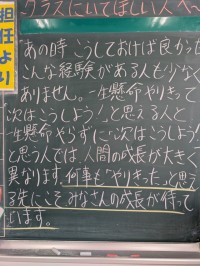 担任より
クラスにいてほしい人へ
"あの時 こうしておけば良かった
こんな経験がある人も少なく
ありません。一生懸命やりきって
次はこうしよう!と思える人と
一生懸命やらずに次はこうしよう!
と思う人では、人間の成長が大きく
異なります。何事も"やりきった"と思え
る先にこそ みなさんの成長が待って
います。